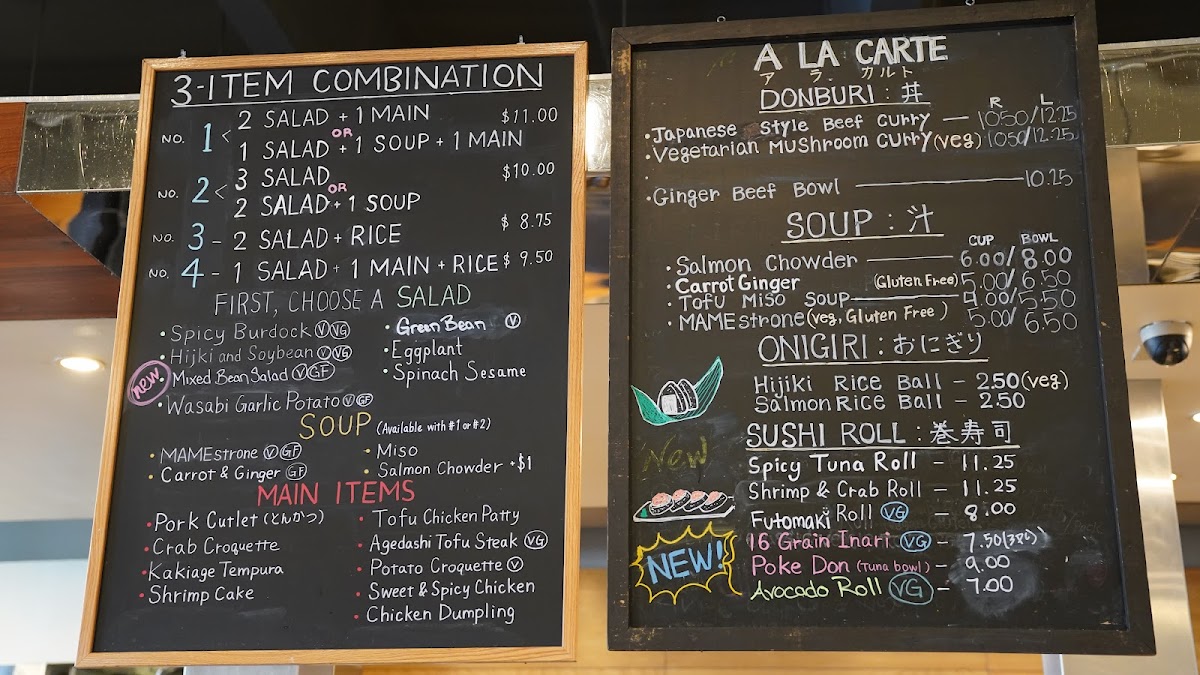 3-ITEM COMBINATION
NO. 1 < 2 SALAD + 1 MAIN $11.00
OR
1 SALAD + 1 SOUP + 1 MAIN
NO. 2 < 3 SALAD $10.00
OR
2 SALAD + 1 SOUP
NO. 3 - 2 SALAD + RICE $ 8.75
NO. 4 - 1 SALAD + 1 MAIN + RICE $ 9.50
FIRST, CHOOSE A SALAD
• Spicy Burdock Ⓥ VG
• Hijki and Soybean Ⓥ VG
new • Mixed Bean Salad Ⓥ GF
• Wasabi Garlic Potato Ⓥ GF
• Green Bean Ⓥ
• Eggplant
• Spinach Sesame
SOUP (Available with #1 or #2)
• MAMEstrone Ⓥ GF
• Carrot & Ginger GF
• Miso
• Salmon Chowder +$1
MAIN ITEMS
• Pork Cutlet (とんかつ)
• Crab Croquette
• Kakiage Tempura
• Shrimp Cake
• Tofu Chicken Patty
• Agedashi Tofu Steak VG
• Potato Croquette Ⓥ
• Sweet & Spicy Chicken
• Chicken Dumpling
A LA CARTE
ア ラ カルト
DONBURI : 丼
R L
• Japanese Style Beef Curry — 10.50/12.25
• Vegetarian Mushroom Curry (veg) 10.50/12.25
• Ginger Beef Bowl — 10.25
SOUP : 汁
CUP BOWL
• Salmon Chowder — 6.00/8.00
• Carrot Ginger (Gluten Free) 5.00/6.50
• Tofu Miso Soup — 4.00/5.50
• MAMEstrone (veg, Gluten Free) 5.00/6.50
ONIGIRI : おにぎり
Hijiki Rice Ball - 2.50 (veg)
Salmon Rice Ball - 2.50
SUSHI ROLL : 巻寿司
New
Spicy Tuna Roll - 11.25
Shrimp & Crab Roll - 11.25
Futomaki Roll VG - 8.00
NEW!
16 Grain Inari VG - 7.50
Poke Don (Tuna bowl) - 9.00
Avocado Roll VG - 7.00